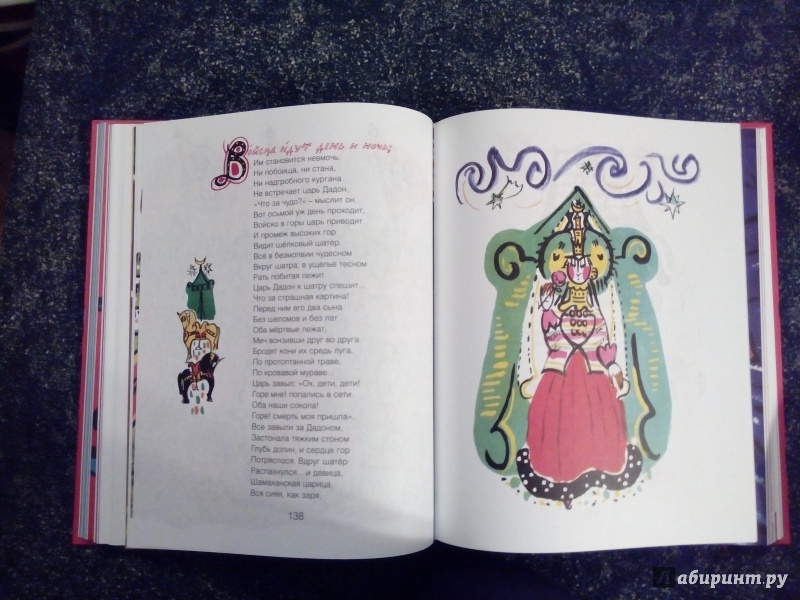 Войска идут день и ночь;
Им становится невмочь.
Ни побоища, ни стана,
Ни надгробного кургана
Не встречает царь Дадон.
«Что за чудо?» – мыслит он.
Вот осьмой уж день проходит,
Войско в горы царь приводит
И промеж высоких гор
Видит шёлковый шатёр.
Всё в безмолвии чудесном
Вкруг шатра; в ущелье тесном
Рать побитая лежит.
Царь Дадон к шатру спешит...
Что за страшная картина!
Перед ним его два сына
Без шеломов и без лат
Оба мёртвые лежат,
Меч вонзивши друг во друга.
Бродят кони их средь луга,
По протоптанной траве,
По кровавой мураве...
Царь завыл: «Ох, дети, дети!
Горе мне! попались в сети
Оба наши сокола!
Горе! смерть моя пришла».
Все завыли за Дадоном,
Застонала тяжким стоном
Глубь долин, и сердце гор
Потряслося. Вдруг шатёр
Распахнулся... и девица,
Шамаханская царица,
Вся сияя, как заря,
138
Лабиринт.ру